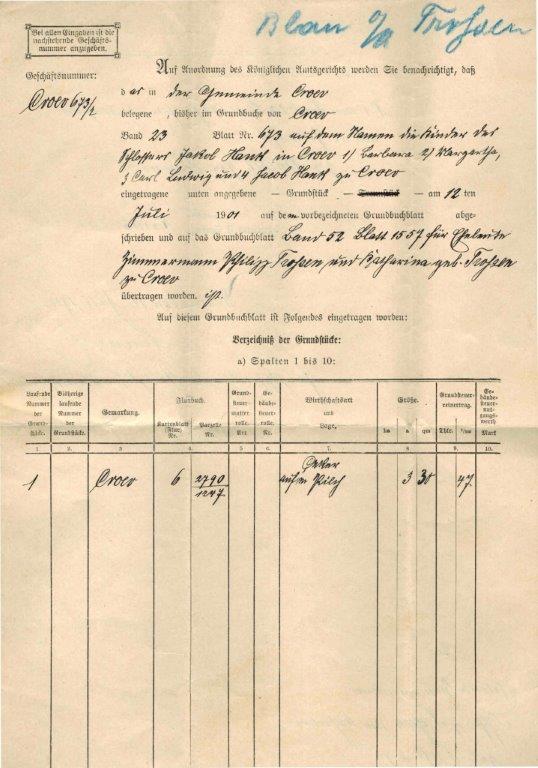 Bei allen Eingaben ist die
nachstehende Geschäfts-
nummer anzugeben.
Blau a/a Troßen
Geschäftsnummer:
Croev 673/2
Auf Anordnung des Königlichen Amtsgerichts werden Sie benachrichtigt, daß
das in der Gemeinde Croev
belegene, bisher im Grundbuche von Croev
Band 23 Blatt Nr. 673 auf dem Namen die Kinder des
Schlossers Jakob Hank in Croev 1) Barbara 2) Margartha,
3 Carl Ludwig und 4 Jacob Hank zu Croev
eingetragene unten angegebene — Grundstück — am 12 ten
Juli 1901 auf dem vorbezeichneten Grundbuchblatt abge-
schrieben und auf das Grundbuchblatt Band 52 Blatt 1557 für Eheleute
Zimmermann Philipp Troßen und Katharina geb. Troßen
zu Croev
übertragen worden. ist.
Auf diesem Grundbuchblatt ist Folgendes eingetragen worden:
Verzeichniß der Grundstücke:
a) Spalten 1 bis 10:
Laufende Nummer der Grund-stücke.
Bisherige laufende Nummer der Grundstücke.
Gemarkung.
Flurbuch.
Kartenblatt (Flur) Nr.
Parzelle Nr.
Grund-steuer-mutter-rolle. Art.
Ge-bäude-steuer-rolle. Nr.
Wirthschaftsart und Lage.
Größe.
ha a qm
Grundsteuer-reinertrag.
Thlr. 1/100
Ge-bäude-steuer-nutzungs-werth Mark
1. 2. 3 4. 5 6. 7. 8 9. 10.
1 Croev 6 2790/1247 Acker 3 30 47
auf'm Pilch